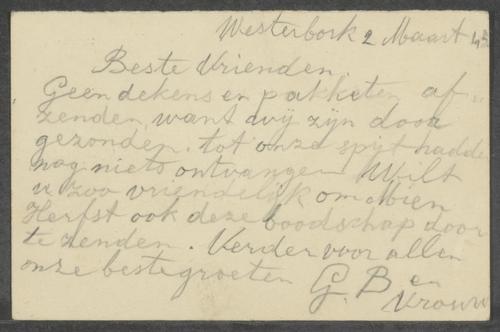 Westerbork 2 Maart 43
Beste Vrienden
Geen dekens en pakketen af
zenden, want wij zijn door
gezonden. tot onze spijt hadden
nog niets ontvangen Wilt
u zoo vriendelijk om bien
Herfst ook deze boodschap door
te zenden. Verder voor allen
onze beste groeten G. B en
Vrouw